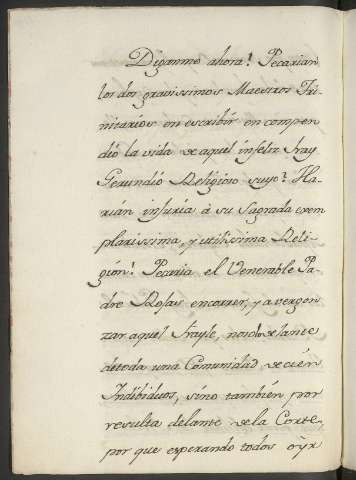 Diganme ahora! Pecarian
los dos gravissimos Maestros Tri-
nitarios en escribir en compen
dio la vida de aquel infeliz fray
Gerundio Religioso suyo? Ha-
rian injuria à su Sagrada exem
plarissima, y utilissima Reli-
gion? Pecaria el Venerable Pa-
dre Rosas en correr, y avergon
zar aquel frayle, no solo delante
de toda una Comunidad, de cien
Indibiduos, sino tambien por
resulta delante de la Corte,
por que esperando todos oyr